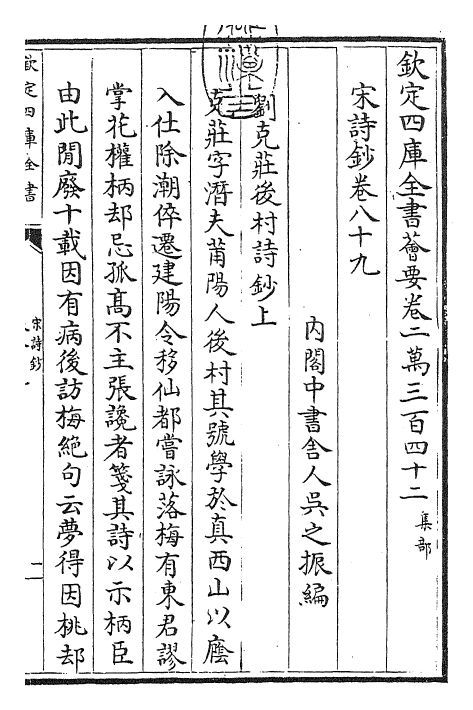 欽定四庫全書薈要卷二萬三百四十二 集部
宋詩鈔卷八十九
內閣中書舍人吳之振編
劉克莊後村詩鈔上
克莊字潛夫莆陽人後村其號學於真西山以廕
入仕除潮倅遷建陽令移仙都嘗詠落梅有東君謬
掌花權柄却忌孤高不主張讒者箋其詩以示柄臣
由此閒廢十載因有病後訪梅絕句云夢得因桃却
欽定四庫全書
宋詩鈔